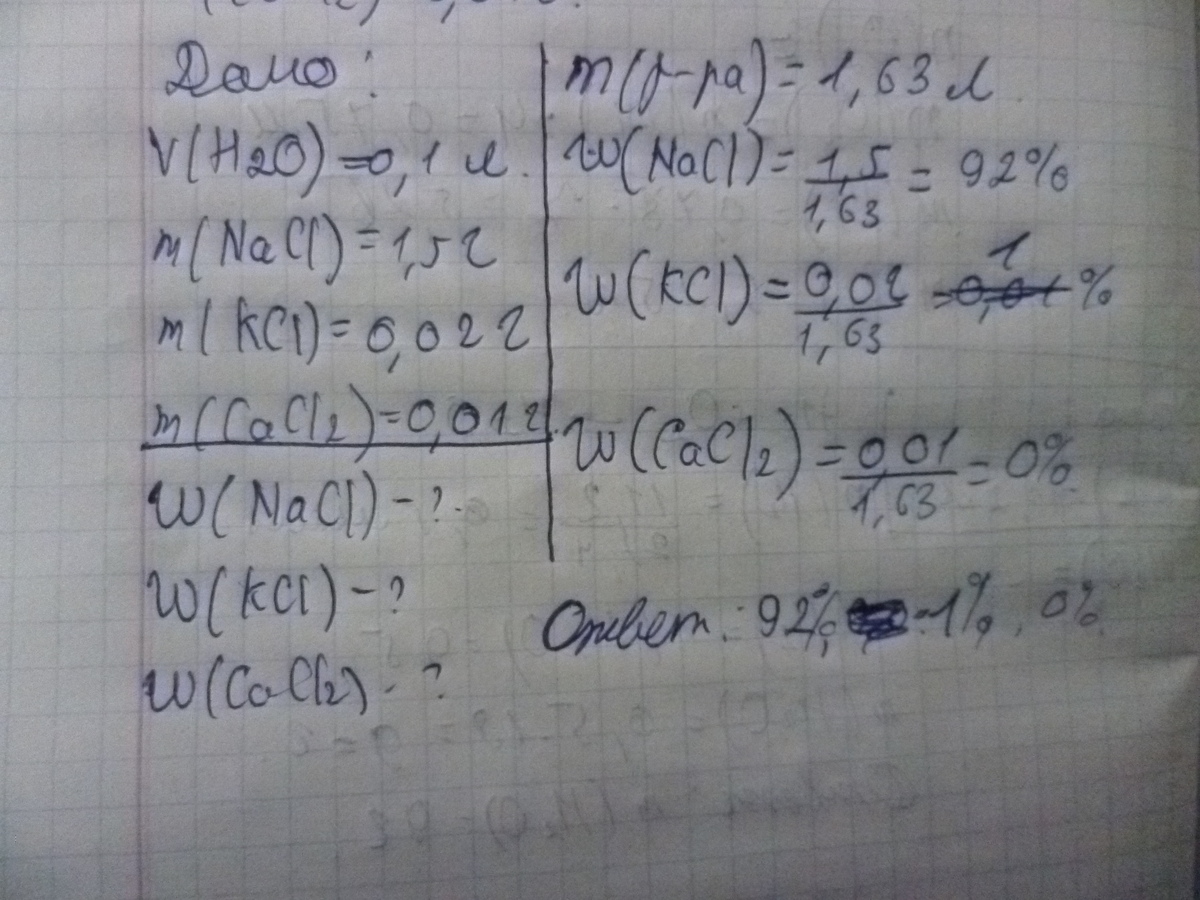 Дано:
V(H2O)=0,1 л.
m(NaCl)=1,5г
m(KCl)=0,02г
m(CaCl2)=0,01г.
W(NaCl)-?.
W(KCl)-?
W(CaCl2)-?
m(р-ра)=1,63 л
W(NaCl)=1,5/1,63=92%
W(KCl)=0,02/1,63 1%
W(CaCl2)=0,01/1,63=0%
Ответ: 92%, 1%, 0%